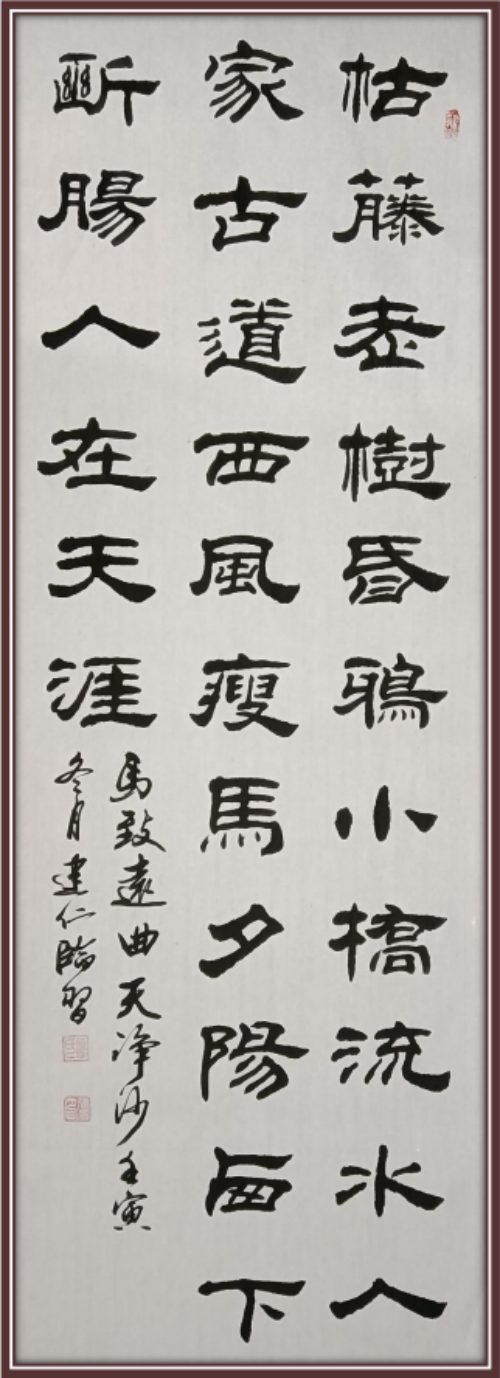 枯藤老樹昏鴉小橋流水人
家古道西風瘦馬夕陽西下
斷腸人在天涯
馬致遠曲天淨沙壬寅
冬月建仁臨習